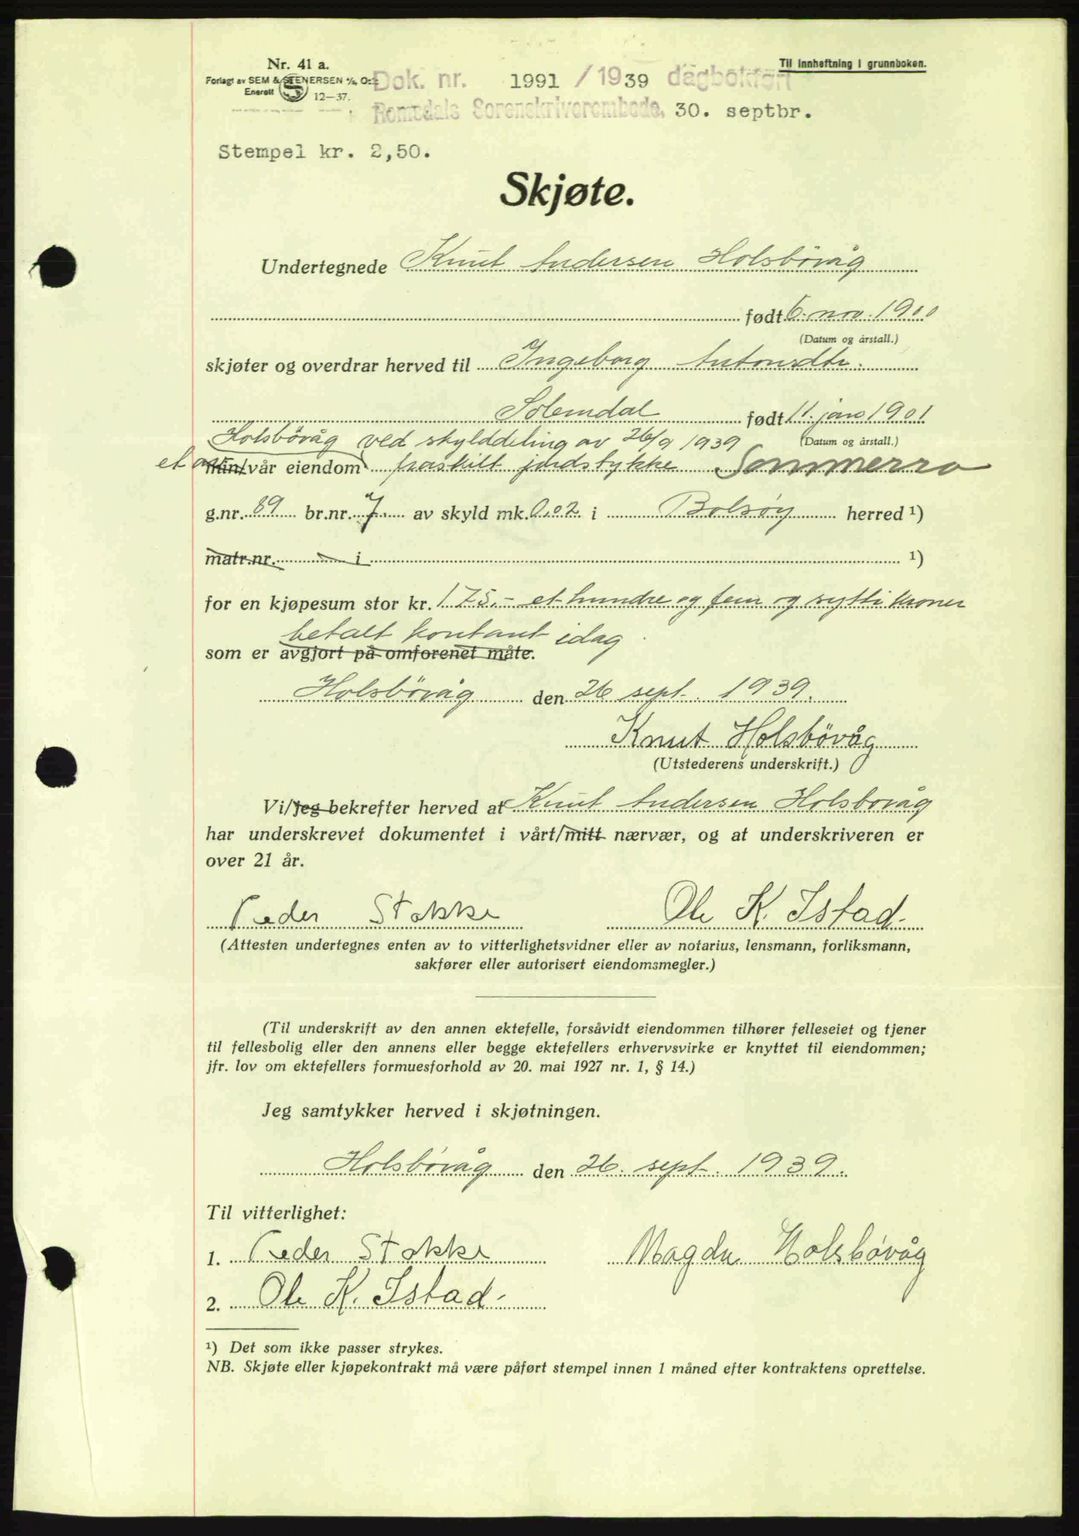 Nr. 41 a.
Til innheftning i grunnboken.
Forlagt av SEM & STENERSEN A/S, Oslo
Enerett 12-37.
Dok. nr. 1991 / 1939 dagbokført
Romsdals Sorenskriverembede, 30. septbr.
Stempel kr. 2,50.
Skjøte.
Undertegnede Knut Andersen Holsbövåg
født 6. nov. 1900
(Datum og årstall.)
skjøter og overdrar herved til Ingeborg Antonsdtr.
Solemdal født 11. jan 1901
(Datum og årstall.)
Holsbövåg ved skylddeling av 26/9 1939
et av min/vår eiendom fraskilt jordstykke Sommerro
g.nr. 89 br.nr. 7 av skyld mk. 0.02 i Bolsøy herred ¹)
matr.nr. i ¹)
for en kjøpesum stor kr. 175.- et hundre og fem og sytti kroner
betalt kontant idag
som er avgjort på omforenet måte.
Holsbövåg den 26 sept. 1939.
Knut Holsbövåg
(Utstederens underskrift.)
Vi/Jeg bekrefter herved at Knut Andersen Holsbovåg
har underskrevet dokumentet i vårt/mitt nærvær, og at underskriveren er
over 21 år.
Peder Stokke Ole K. Istad.
(Attesten undertegnes enten av to vitterlighetsvidner eller av notarius, lensmann, forliksmann,
sakfører eller autorisert eiendomsmegler.)
(Til underskrift av den annen ektefelle, forsåvidt eiendommen tilhører felleseiet og tjener
til fellesbolig eller den annens eller begge ektefellers erhvervsvirke er knyttet til eiendommen;
jfr. lov om ektefellers formuesforhold av 20. mai 1927 nr. 1, § 14.)
Jeg samtykker herved i skjøtningen.
Holsbövåg den 26. sept. 1939.
Til vitterlighet:
1. Peder Stokke Magda Holsbövåg
2. Ole K. Istad.
¹) Det som ikke passer strykes.
NB. Skjøte eller kjøpekontrakt må være påført stempel innen 1 måned efter kontraktens oprettelse.